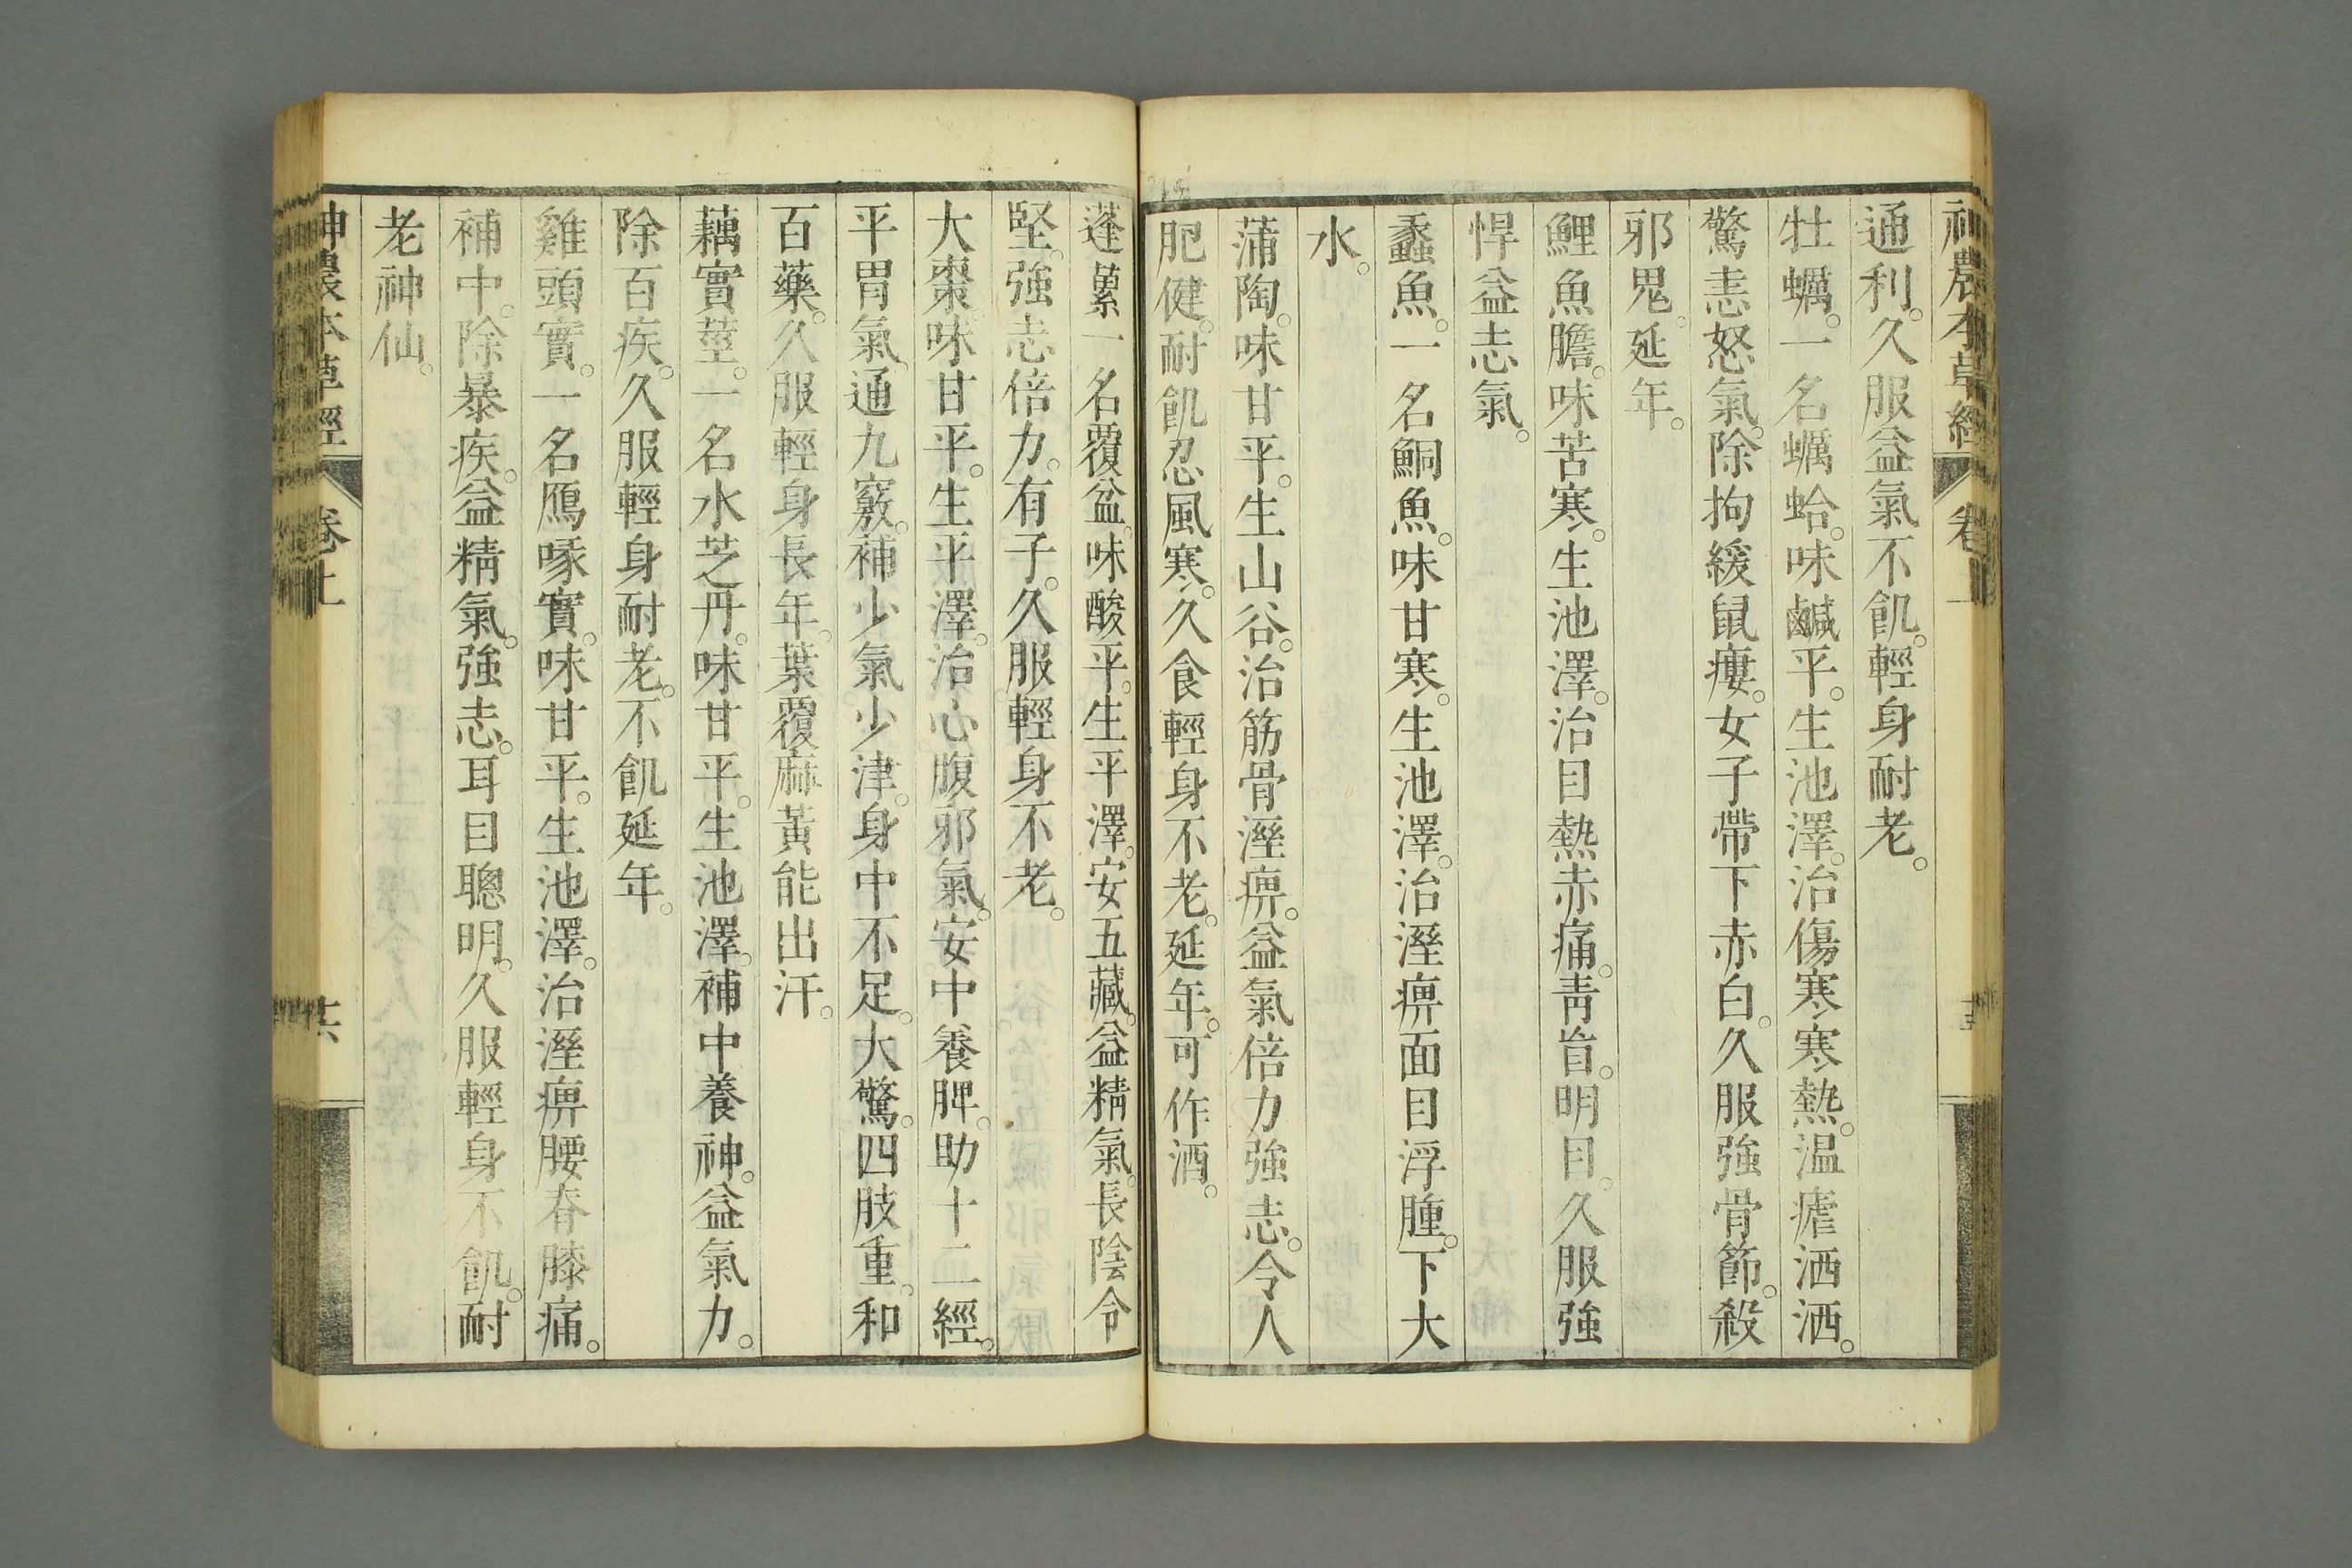 通利。久服益氣不飢。輕身耐老。
牡蠣。一名蠣蛤。味鹹平。生池澤。治傷寒寒熱。温瘧洒洒。
驚恚怒氣。除拘緩鼠瘻。女子帶下赤白。久服強骨節。殺
邪鬼。延年。
鯉魚膽。味苦寒。生池澤。治目熱赤痛。靑盲。明目。久服強
悍益志氣。
蠡魚。一名鮦魚。味甘寒。生池澤。治溼痹面目浮腫。下大
水。
蒲陶。味甘平。生山谷。治筋骨溼痹。益氣倍力強志。令人
肥健。耐飢忍風寒。久食輕身不老。延年。可作酒。
蓬虆一名覆盆。味酸平。生平澤。安五藏。益精氣。長陰令
堅。強志倍力。有子。久服輕身不老。
大棗。味甘平。生平澤。治心腹邪氣。安中養脾。助十二經。
平胃氣。通九竅。補少氣少津。身中不足。大驚。四肢重。和
百藥。久服輕身長年。葉覆麻黃能出汗。
藕實莖。一名水芝丹。味甘平。生池澤。補中養神。益氣力。
除百疾。久服輕身耐老。不飢延年。
雞頭實。一名鴈喙實。味甘平。生池澤。治溼痹腰脊膝痛。
補中。除暴疾。益精氣。強志。耳目聰明。久服輕身不飢。耐
老神仙。
神農本草經 卷上 十六